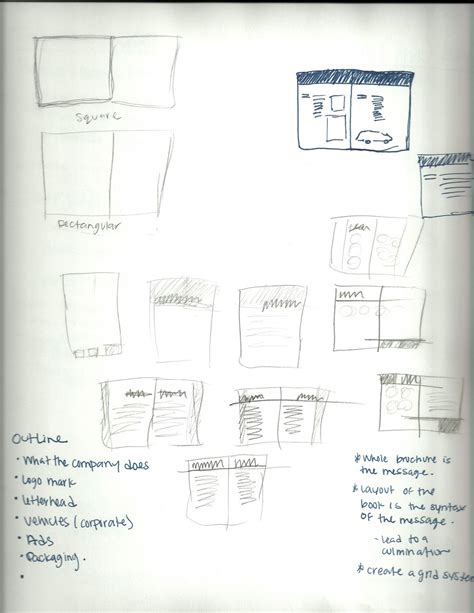 Square
Rectangular
Outline
• What the company does
• Logo mark
• letterhead
• vehicles (corpirate)
• Ads
• Packaging.
•
* Whole brochure is
the message.
* layout of the
book is the syntax
of the message.
- lead to a
culmination
* create a grid system